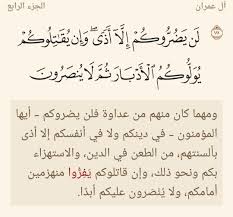 آل عمران الجزء الرابع
لَن يَضُرُّوكُمْ إِلَّآ أَذًى ۖ وَإِن يُقَـٰتِلُوكُمْ
يُوَلُّوكُمُ ٱلْأَدْبَارَ ثُمَّ لَا يُنصَرُونَ
ومهما كان منهم من عداوة فلن يضروكم - أيها
المؤمنون - في دينكم ولا في أنفسكم إلا أذى
بألسنتهم، من الطعن في الدين، والاستهزاء
بكم ونحو ذلك، وإن قاتلوكم يَفِرُّوا منهزمين
أمامكم، ولا يُنصرون عليكم أبدًا.